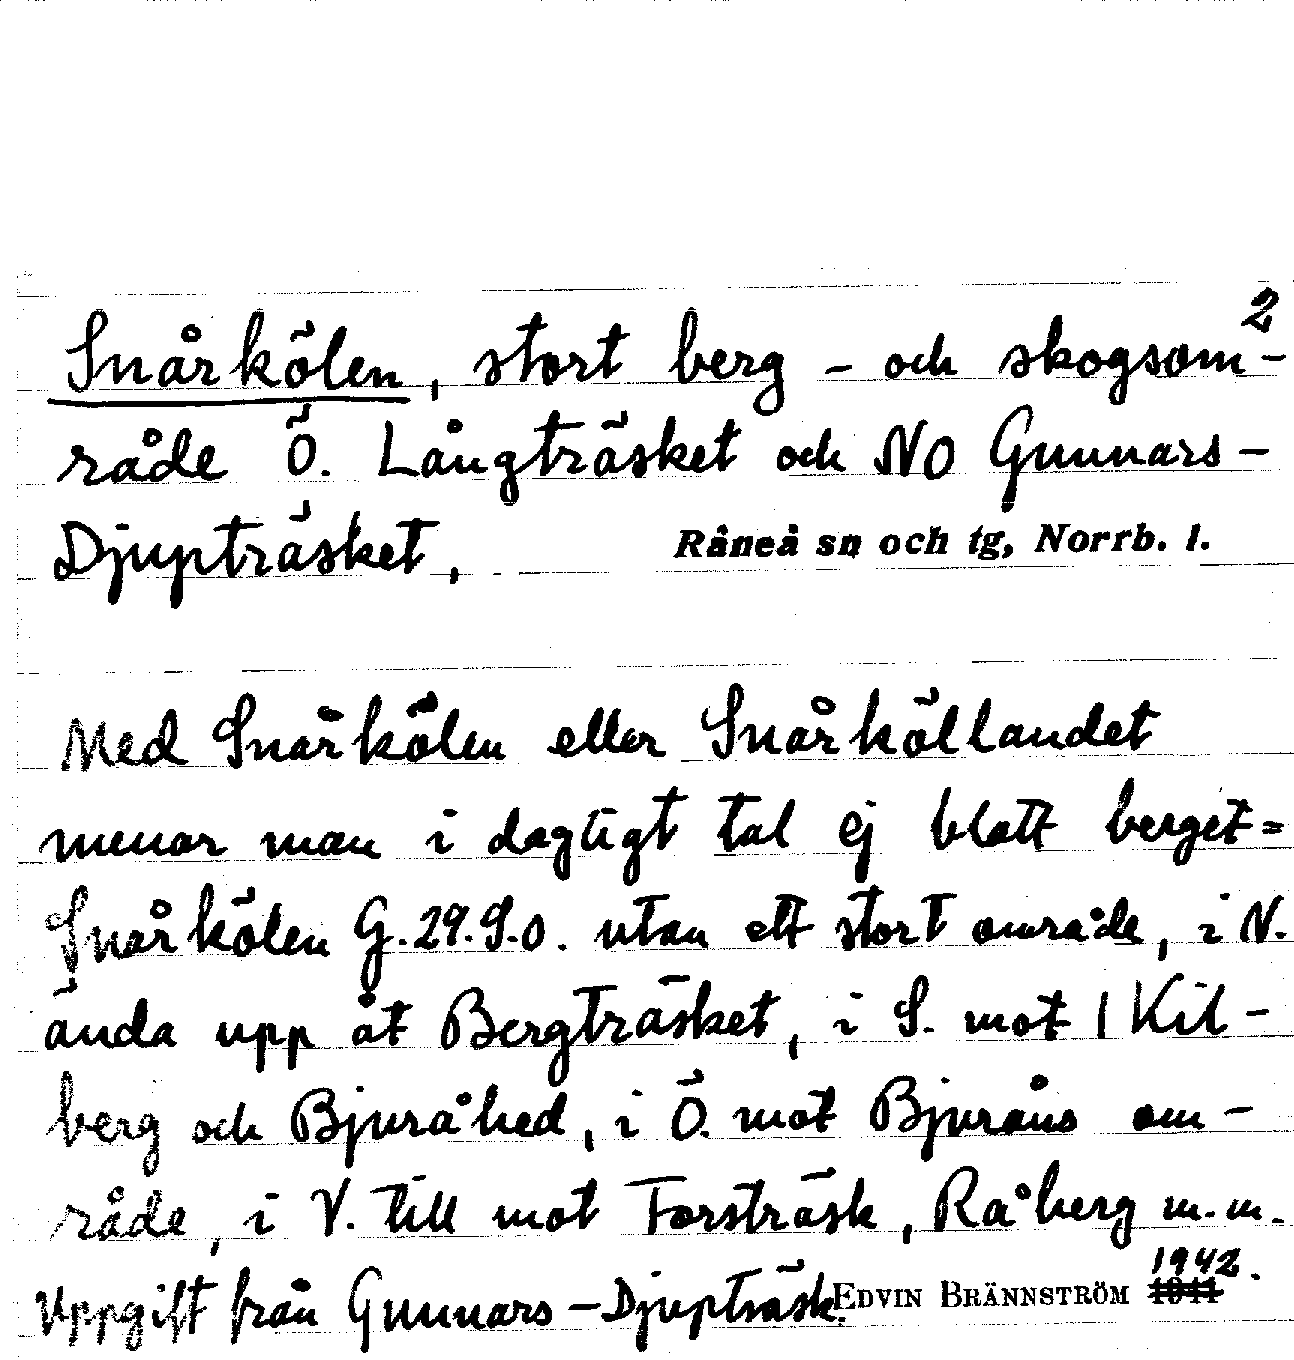 2
Snårkölen, stort berg- och skogsom-
råde Ö. Långträsket och NO Gunnars-
Djupträsket,
Råneå sn och tg, Norrb. l.
Med Snårkölen eller Snårköllandet
menar man i dagligt tal ej blott berget=
Snårkölen G.29.S.o. utan ett stort område, i N.
ända upp åt Bergträsket, i S. mot l Kil-
berg och Bjuråhed, i Ö. mot Bjuråns om-
råde, i V. till mot Forsträsk, Råberg m.m.
Uppgift från Gunnars-Djupträsk.
EDVIN BRÄNNSTRÖM 1941 1942.